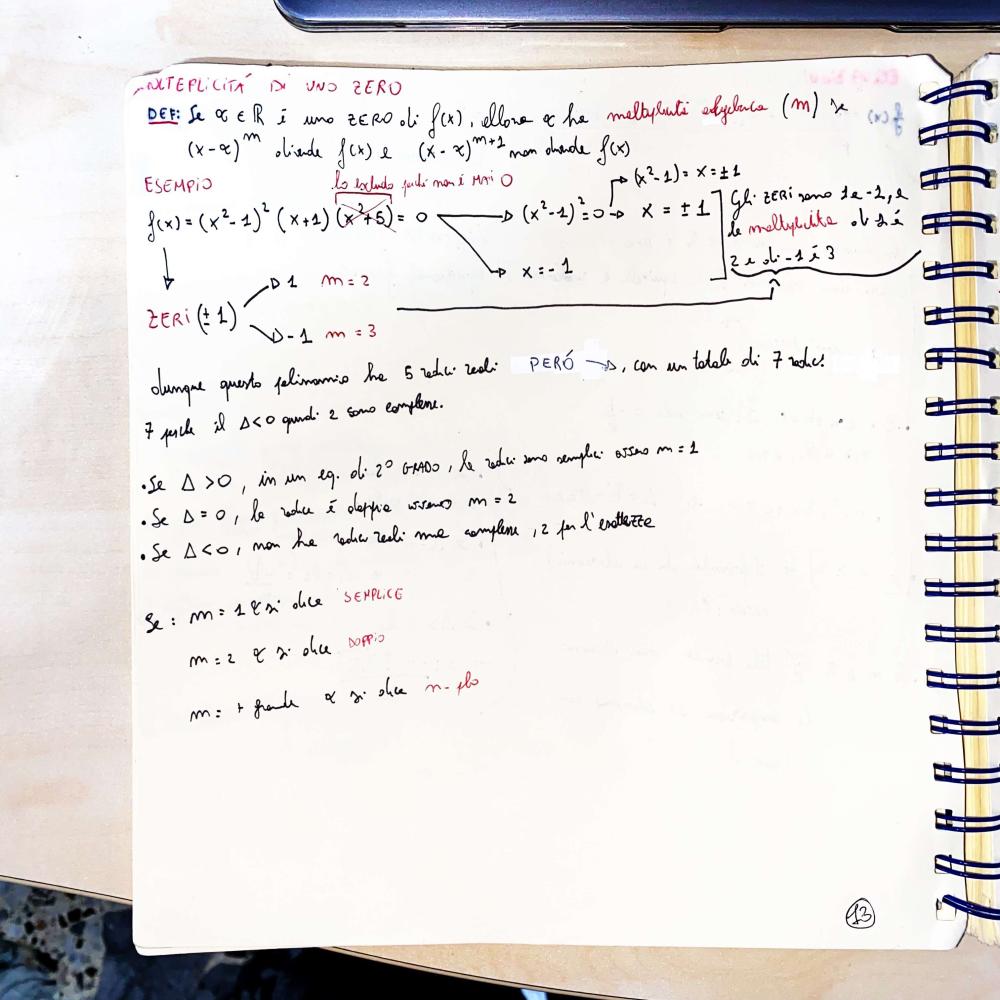 MOLTEPLICITÁ DI UNO ZERO
DEF: Se α ∈ ℝ è uno ZERO di f(x), allora α ha molteplicità algebrica (m) se
(x-α)^m divide f(x) e (x-α)^{m+1} non divide f(x)
ESEMPIO lo escludo perché non è MAI 0 → (x²-1) = x = ±1
f(x) = (x²-1)² (x+1) (x²+5) = 0 → (x²-1)² = 0 → x = ±1
Gli ZERI sono 1 e -1, e
la molteplicità di 1 è
2 e di -1 è 3
→ x = -1
ZERI (±1) → 1 m = 2
→ -1 m = 3
dunque questo polinomio ha 5 radici reali PERÓ →, con un totale di 7 radici
7 perché il Δ<0 quindi 2 sono complesse.
• Se Δ >0, in un eq. di 2° GRADO, le radici sono semplici ovvero m = 1
• Se Δ = 0, la radice è doppia ovvero m = 2
• Se Δ <0, non ha radici reali ma complesse, 2 per l'esattezza
Se: m = 1 α si dice SEMPLICE
m = 2 α si dice DOPPIO
m = + grande α si dice n-plo
13